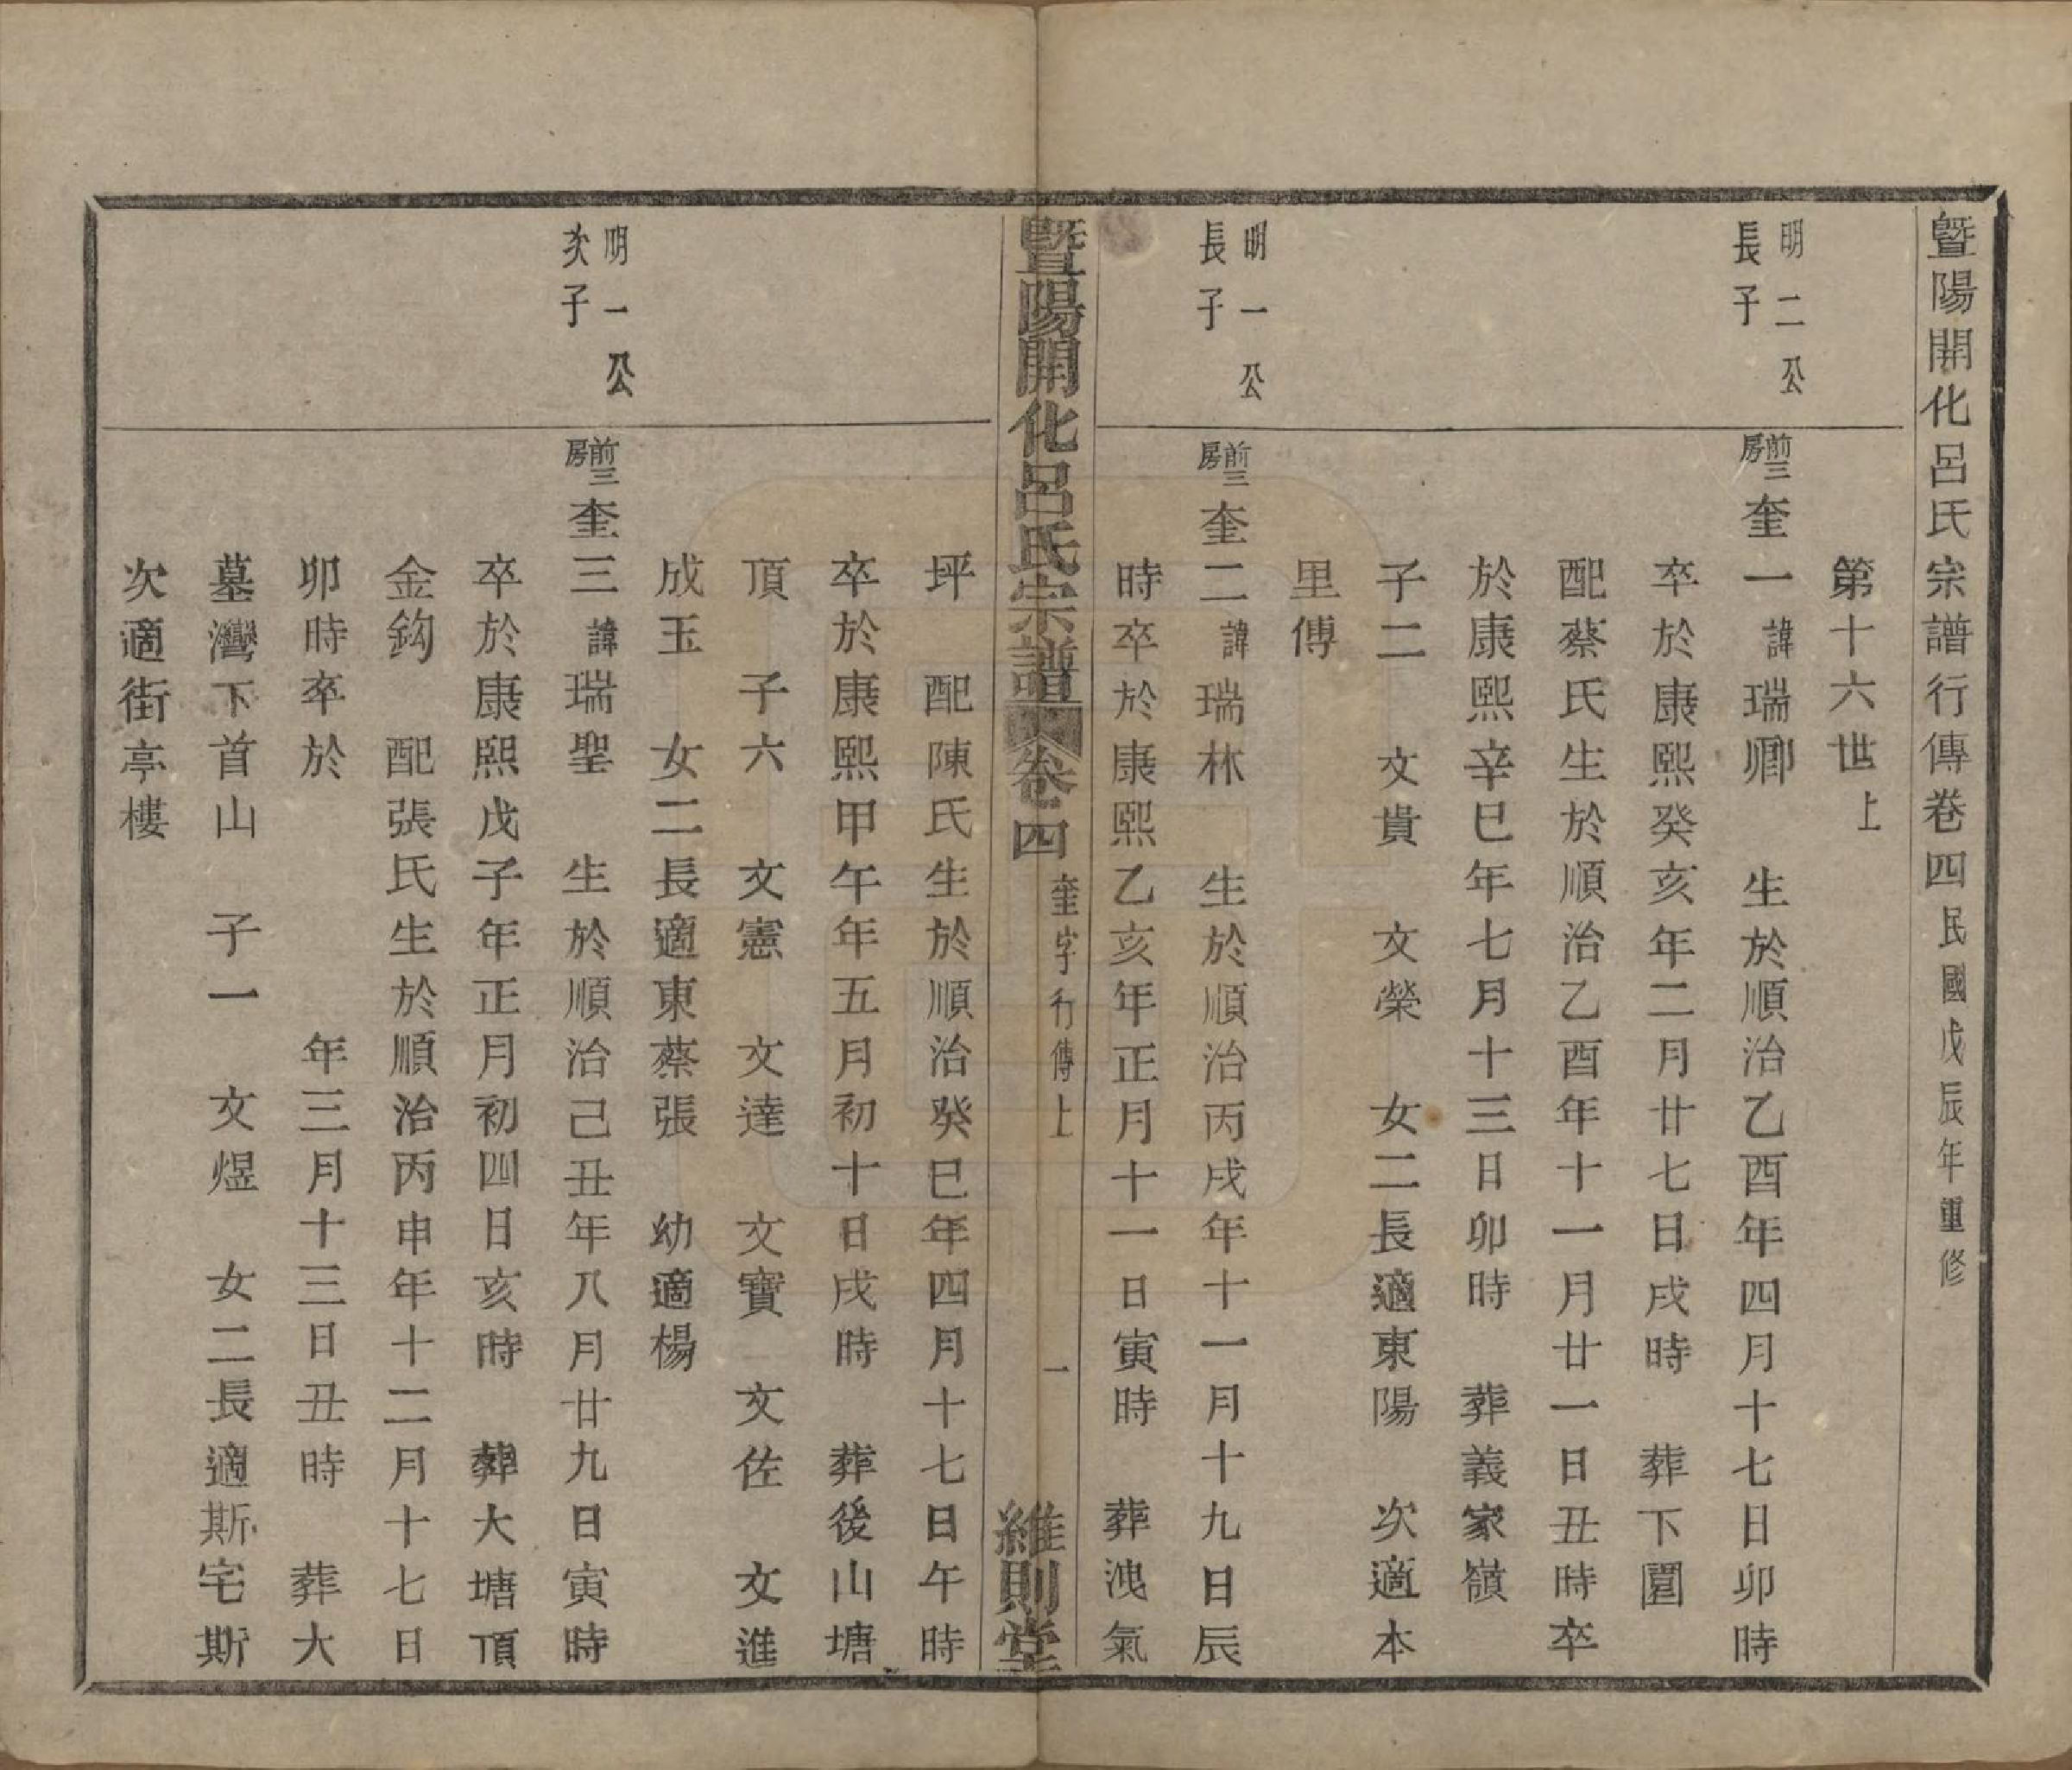 暨陽開化呂氏宗譜行傳卷四民國戊辰年重修
第十六世上
明二公
長子
前三房奎一諱瑞卿 生於順治乙酉年四月十七日卯時
卒於康熙癸亥年二月廿七日戌時 葬下園
配蔡氏生於順治乙酉年十一月廿一日丑時卒
於康熙辛巳年七月十三日卯時 葬義家嶺
子二 文貴 文榮 女二長適東陽 次適本
里傅
明一公
長子
前三房奎二諱瑞林 生於順治丙戌年十一月十九日辰
時卒於康熙乙亥年正月十一日寅時 葬洩氣
暨陽開化呂氏宗譜 卷四 奎字行傳上 一 維則堂
坪 配陳氏生於順治癸巳年四月十七日午時
卒於康熙甲午年五月初十日戌時 葬後山塘
頂 子六 文憲 文達 文寶 文佐 文進
成玉 女二長適東蔡張 幼適楊
明一公
次子
前三房奎三諱瑞聖 生於順治己丑年八月廿九日寅時
卒於康熙戊子年正月初四日亥時 葬大塘頂
金鈎 配張氏生於順治丙申年十二月十七日
卯時卒於 年三月十三日丑時 葬大
墓灣下首山 子一 文煜 女二長適斯宅斯
次適街亭樓